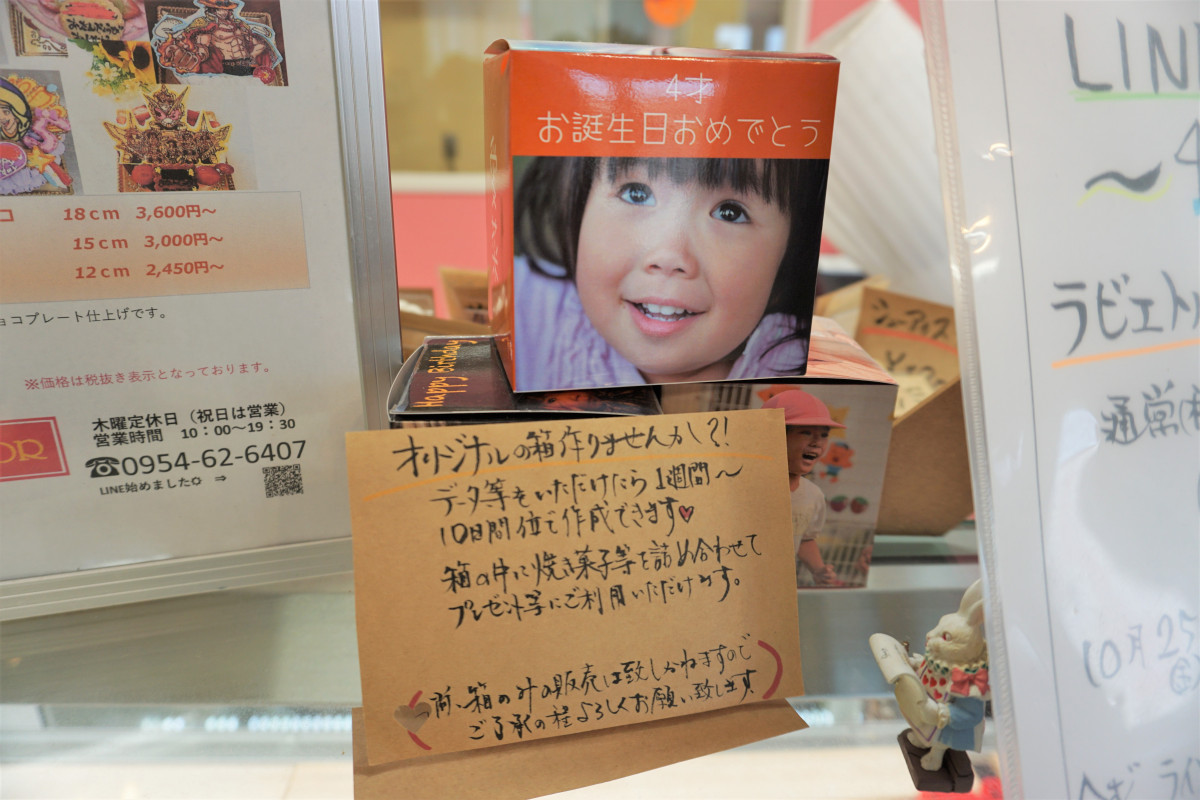 コ 18cm 3,600円～
15cm 3,000円～
12cm 2,450円～
ョコプレート仕上げです。
※価格は税抜き表示となっております。
OR
木曜定休日（祝日は営業）
営業時間 10：00～19：30
☎0954-62-6407
LINE始めました✿ ⇒
4才
お誕生日おめでとう
Happy Birthday
オリジナルの箱作りませんかして?!
データ等をいただけたら1週間～
10日間位で作成できます♥
箱の中に焼き菓子等を詰め合わせて
プレゼント等にご利用いただけます。
尚、箱のみの販売は致しかねますので
ご了承の程よろしくお願い致します
シューアイス
LIN
～4
ラビエト
通常
10月25